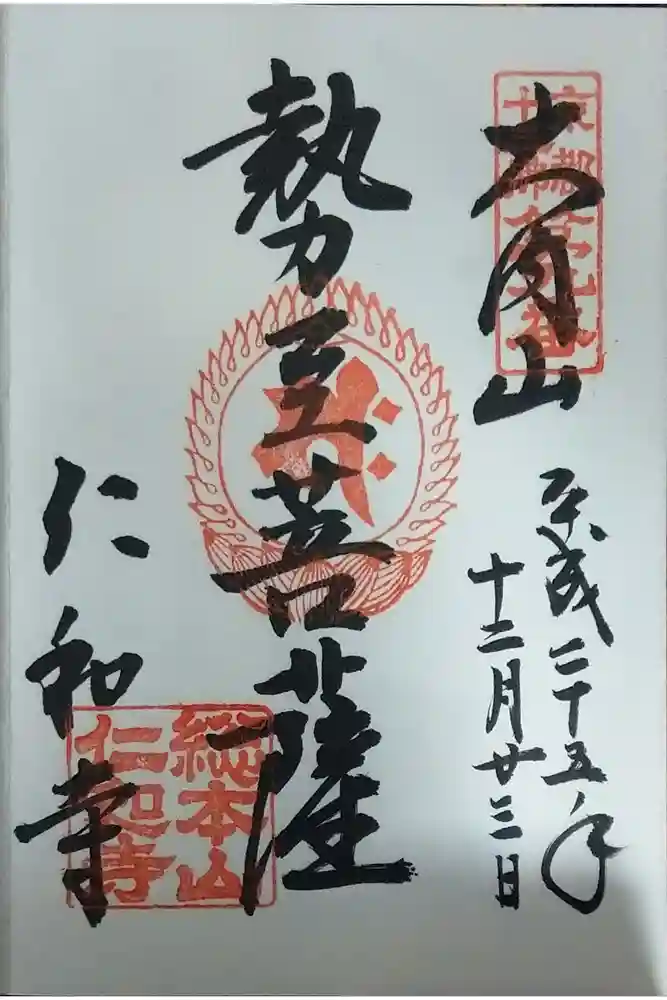 大内山
平成二十五年
十二月廿三日
勢至菩薩
仁和寺
総本山
仁和寺